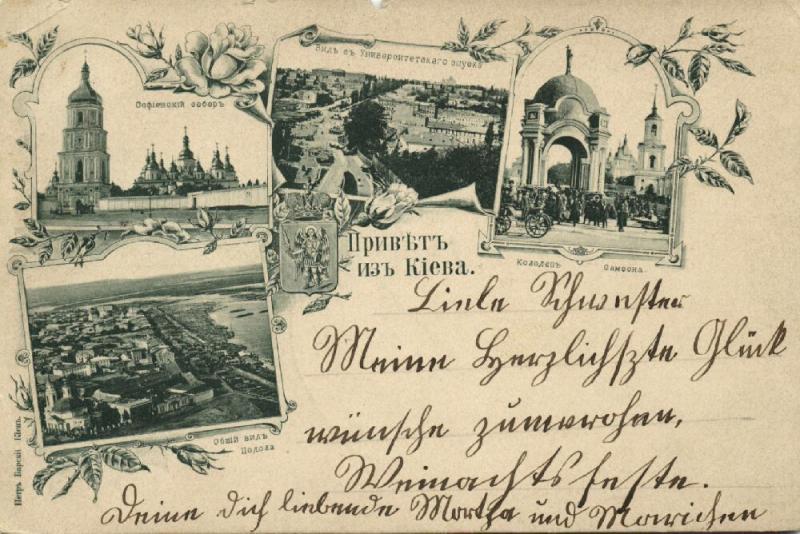 Софіевскій соборъ
Видъ съ Университетскаго спуска
Колодецъ Самсона.
Привѣтъ
изъ Кіева.
Общій видъ
Подола
Петръ Барскій Кіевъ.
Liele Schwester
Meine Herzlichszte Glück
wünsche zum frohen,
Weinachtsfeste.
Deine dich liebende Martha und Mariechen